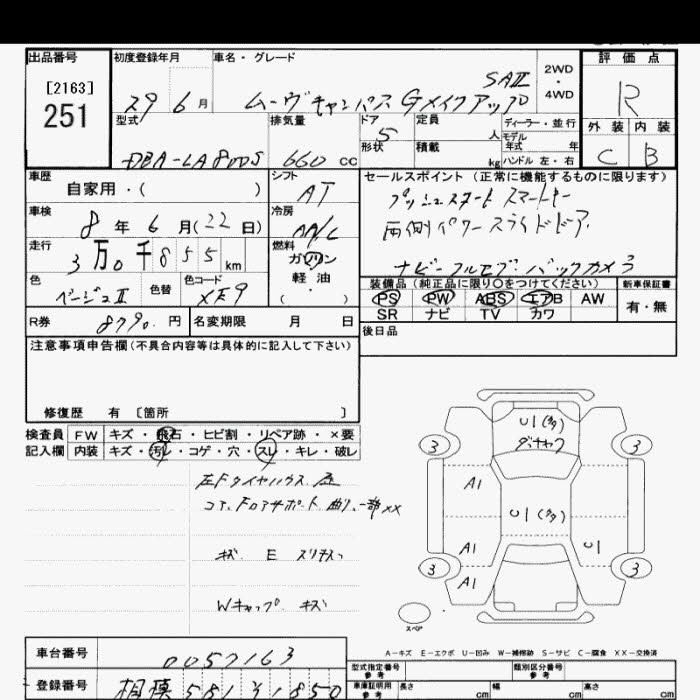 出品番号
[2163]
251
初度登録年月
29 6 月
車名・グレード
SAⅡ
ムーヴキャンバス Gメイクアップ
2WD
・
4WD
評価点
R
外装 内装
C B
型式
DBA-LA800S
排気量
660 cc
ドア
5
形状
定員
人
積載
kg
ディーラー・並行
モデル
年式 年
ハンドル 左・右
車歴
自家用・( )
シフト
AT
車検
8 年 6 月(22 日)
冷房
AA/C
走行
3万0千855 km
燃料
ガソリン
軽油
( )
色
ベージュⅡ
色替
色コード
XE9
R券
8790. 円
名変期限 月 日
セールスポイント (正常に機能するものに限ります)
プッシュスタート スマートキー
両側パワースライドドア
ナビ フルセグ バックカメラ
装備品(純正品に限り○をつけてください)
PS PW ABS エアB AW
SR ナビ TV カワ
新車保証書
有・無
後日品
注意事項申告欄(不具合内容等は具体的に記入して下さい)
修復歴 有 〔箇所 〕
検査員
記入欄
FW キズ・飛石・ヒビ割・リペア跡・×要
内装 キズ・汚レ・コゲ・穴・スレ・キレ・破レ
左Fタイヤハウス 凹
コア、Fロアサポート 曲り、一部××
キズ E スリキズ
Wキャップ キズ
U1(多)
3 3
A1
U1(多)
A1 U1
3 3
A1
スペア
A-キズ E-エクボ U-凹み W-補修跡 S-サビ C-腐食 XX-交換済
車台番号
0057163
登録番号
相模 581 31850
型式指定番号
参考
類別区分番号
参考
車庫証明用
参考
長さ cm
幅 cm
高さ cm